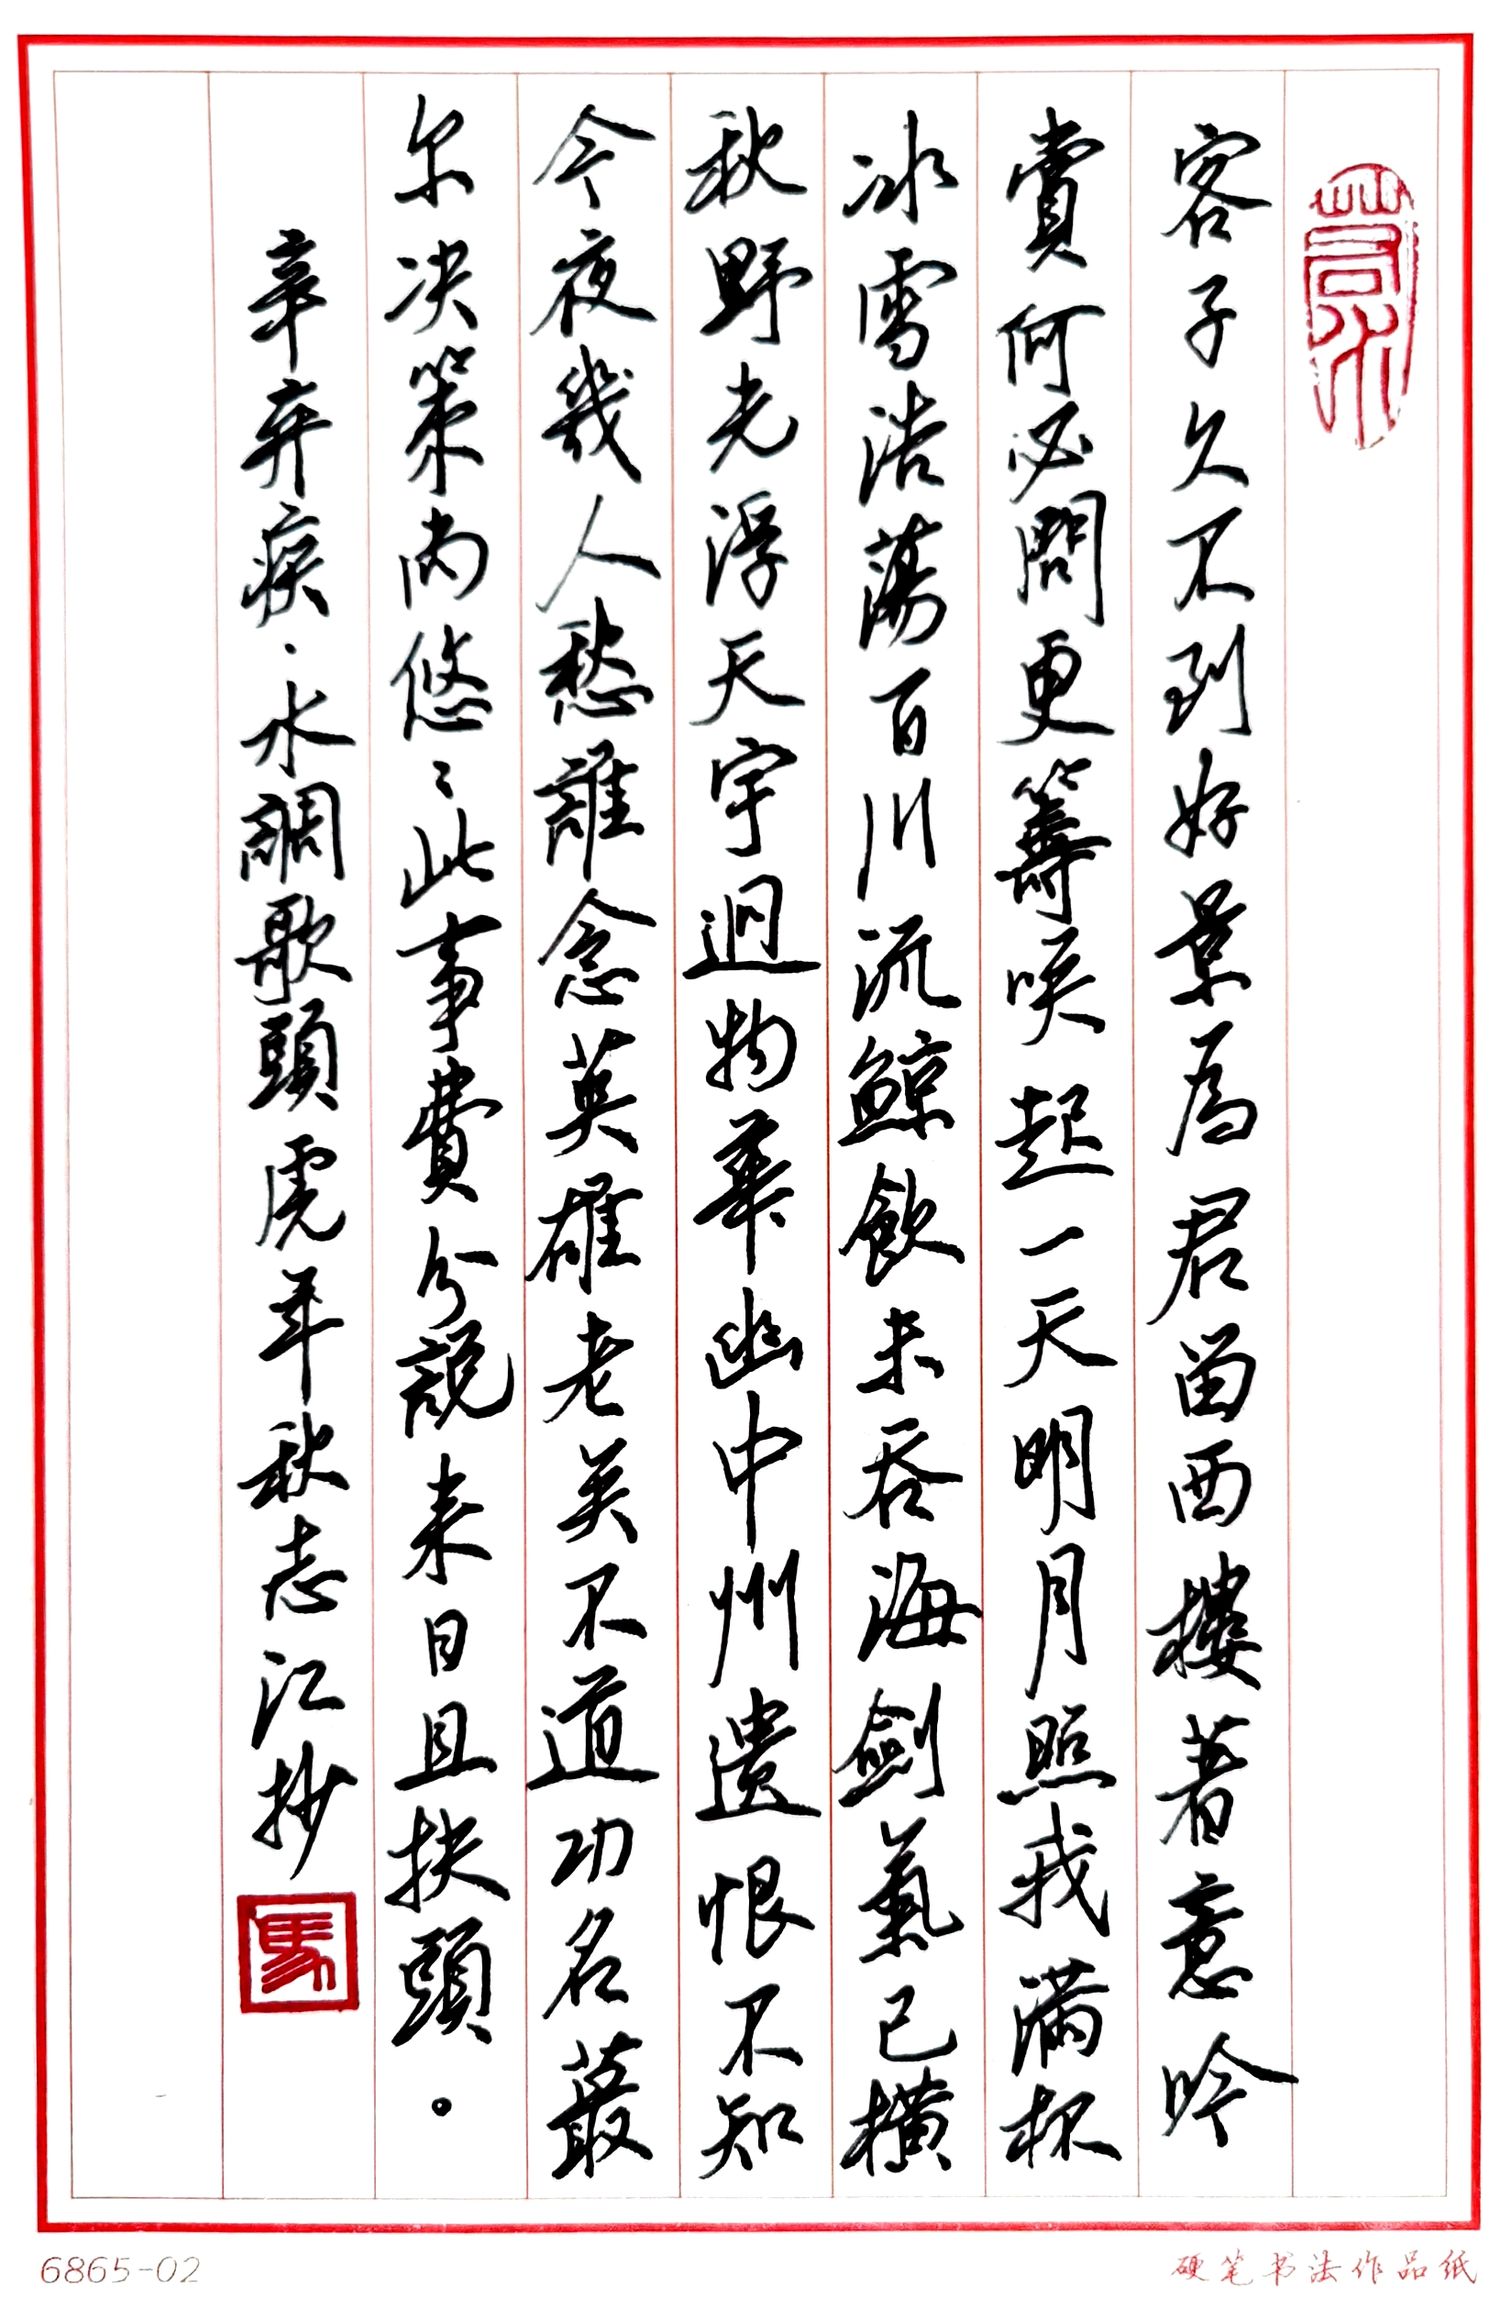 客子久不到好景為君留西樓著意吟
賞何必問更籌唤起一天明月照我滿杯
冰雪浩蕩百川流鲸飲未吞海劍氣已横
秋野光浮天宇迥物華幽中州遺恨不知
今夜幾人愁誰念英雄老矣不道功名蕞
尔决策尚悠〻此事費分説来日且扶頭。
辛弃疾·水調歌頭虎年秋志江抄
馬
6865-02
硬笔书法作品纸